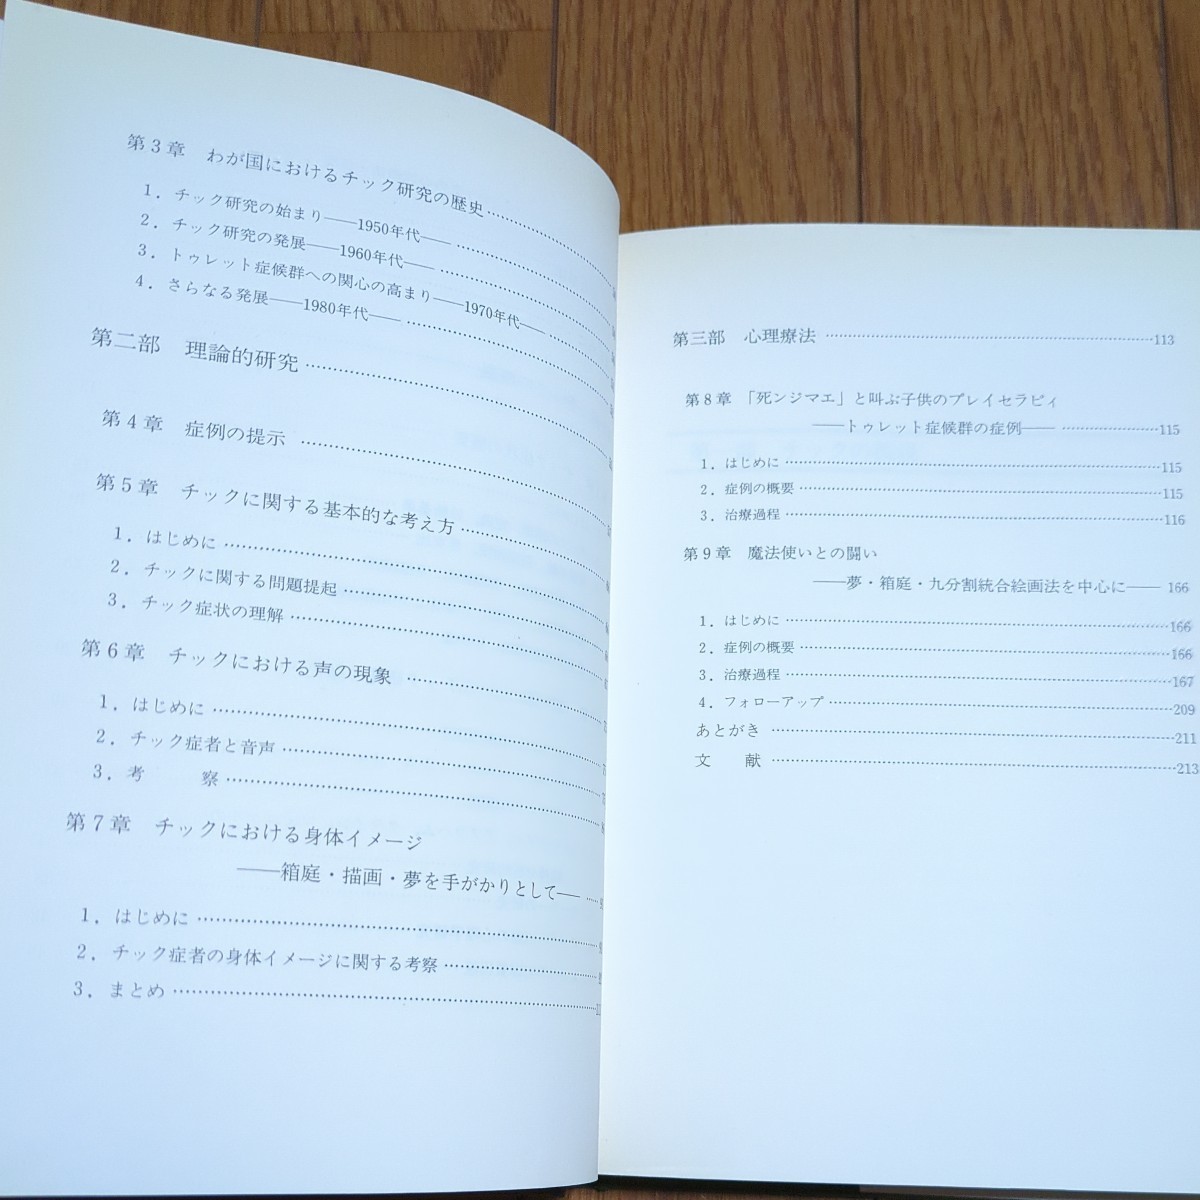 第3章　わが国におけるチック研究の歴史
1．チック研究の始まり——1950年代——
2．チック研究の発展——1960年代——
3．トゥレット症候群への関心の高まり——1970年代——
4．さらなる発展——1980年代——
第二部　理論的研究
第4章　症例の提示
第5章　チックに関する基本的な考え方
1．はじめに
2．チックに関する問題提起
3．チック症状の理解
第6章　チックにおける声の現象
1．はじめに
2．チック症者と音声
3．考　　察
第7章　チックにおける身体イメージ
——箱庭・描画・夢を手がかりとして——
1．はじめに
2．チック症者の身体イメージに関する考察
3．まとめ
第三部　心理療法 113
第8章　「死ンジマエ」と叫ぶ子供のプレイセラピィ
——トゥレット症候群の症例—— 115
1．はじめに 115
2．症例の概要 115
3．治療過程 116
第9章　魔法使いとの闘い
——夢・箱庭・九分割統合絵画法を中心に—— 166
1．はじめに 166
2．症例の概要 166
3．治療過程 167
4．フォローアップ 209
あとがき 211
文　献 213